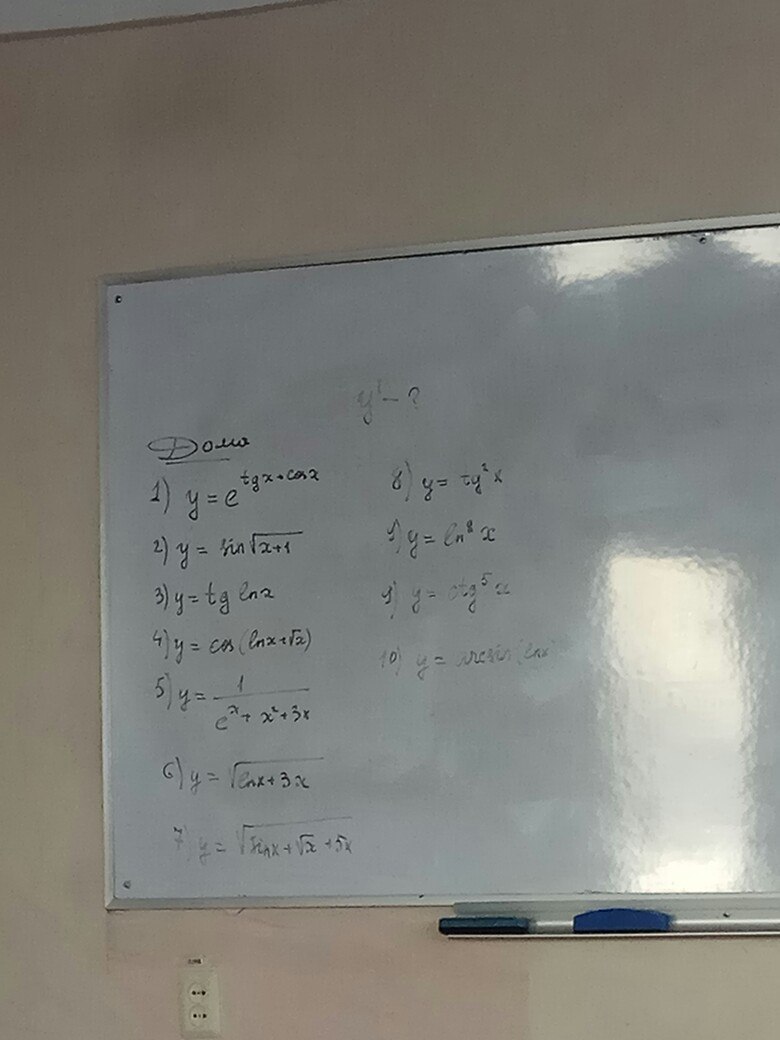 y' - ?
Дома
1) y = e^{tgx+cosx}
2) y = sin√(x+1)
3) y = tg lnx
4) y = cos(lnx+√x)
5) y = 1/(e^x + x² + 3x)
6) y = √(lnx + 3x)
7) y = √(sinx + √x + 5x)
8) y = τy² x
9) y = ln⁸ x
9) y = ctg⁵ x
10) y = arcsin(lnx)